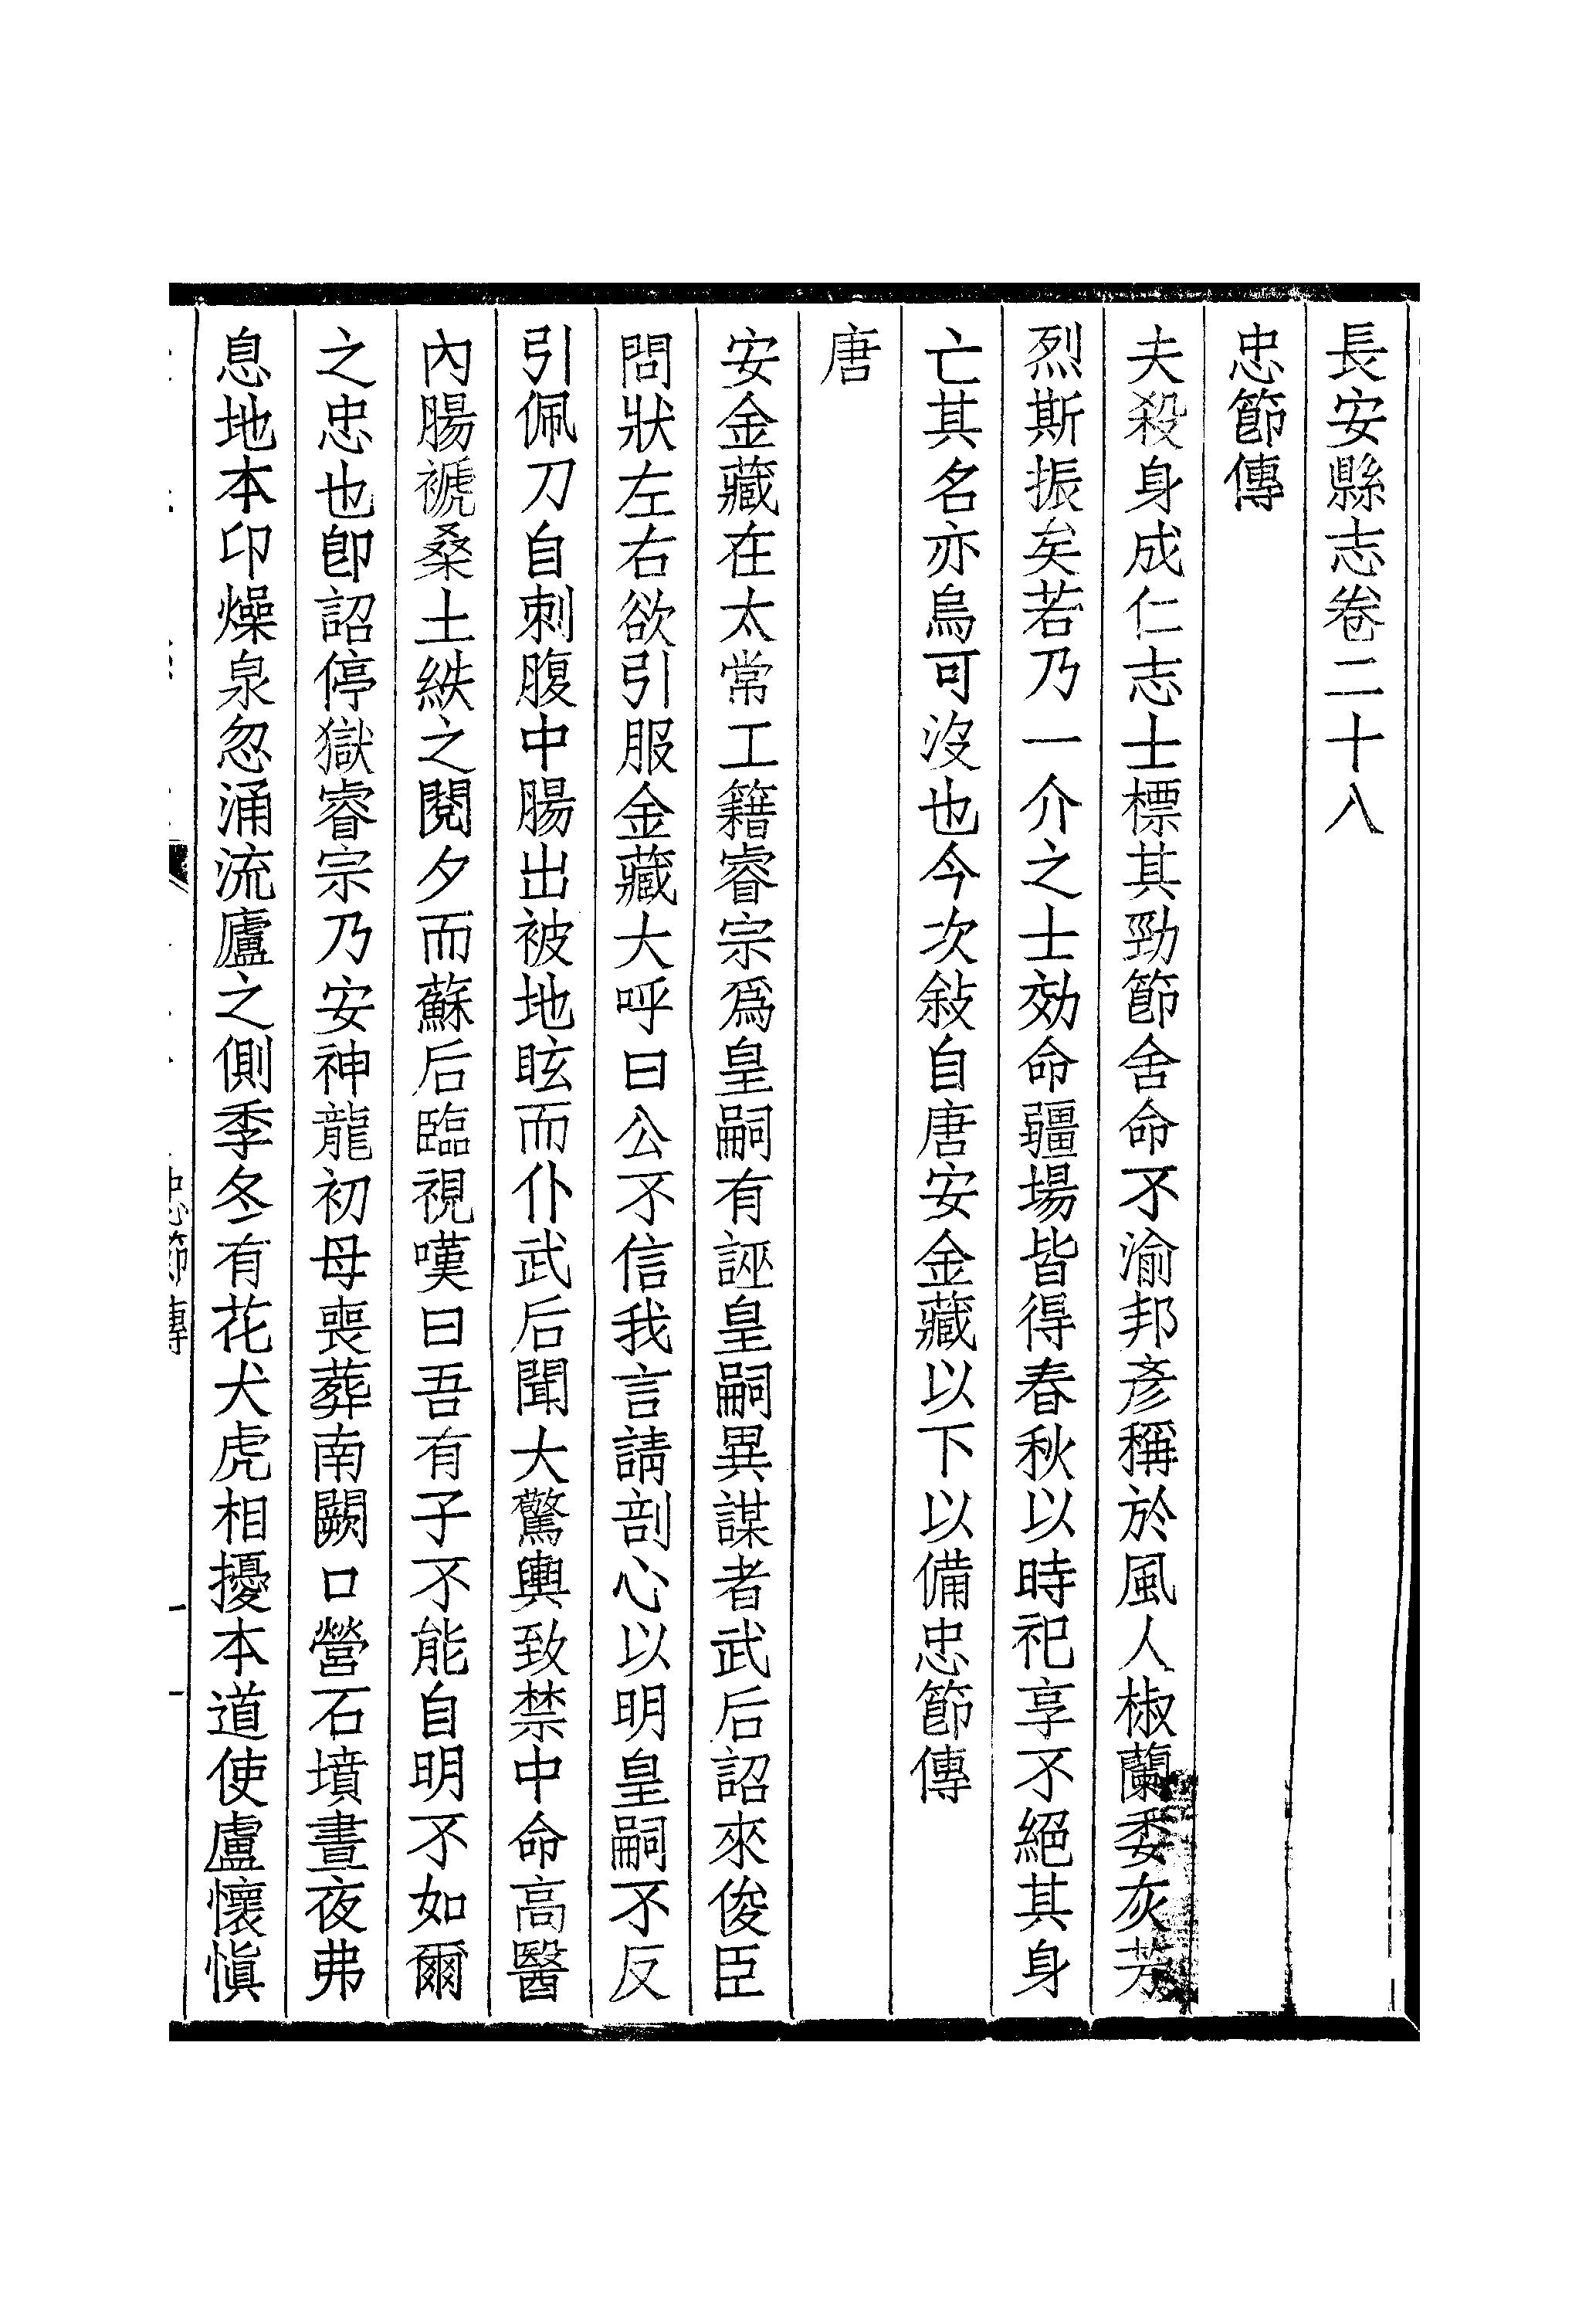 長安縣志卷二十八
忠節傳
夫殺身成仁志士標其勁節舍命不渝邦彥稱於風人椒蘭委灰芳
烈斯振矣若乃一介之士効命疆場皆得春秋以時祀享不絕其身
亡其名亦烏可沒也今次敍自唐安金藏以下以備忠節傳
唐
安金藏在太常工籍睿宗爲皇嗣有誣皇嗣異謀者武后詔來俊臣
問狀左右欲引服金藏大呼曰公不信我言請剖心以明皇嗣不反
引佩刀自刺腹中腸出被地眩而仆武后聞大驚輿致禁中命高醫
內腸褫桑土紩之閱夕而蘇后臨視嘆曰吾有子不能自明不如爾
之忠也卽詔停獄睿宗乃安神龍初母喪葬南闕口營石墳晝夜弗
息地本卬燥泉忽涌流廬之側季冬有花犬虎相擾本道使盧懷愼
忠節傳